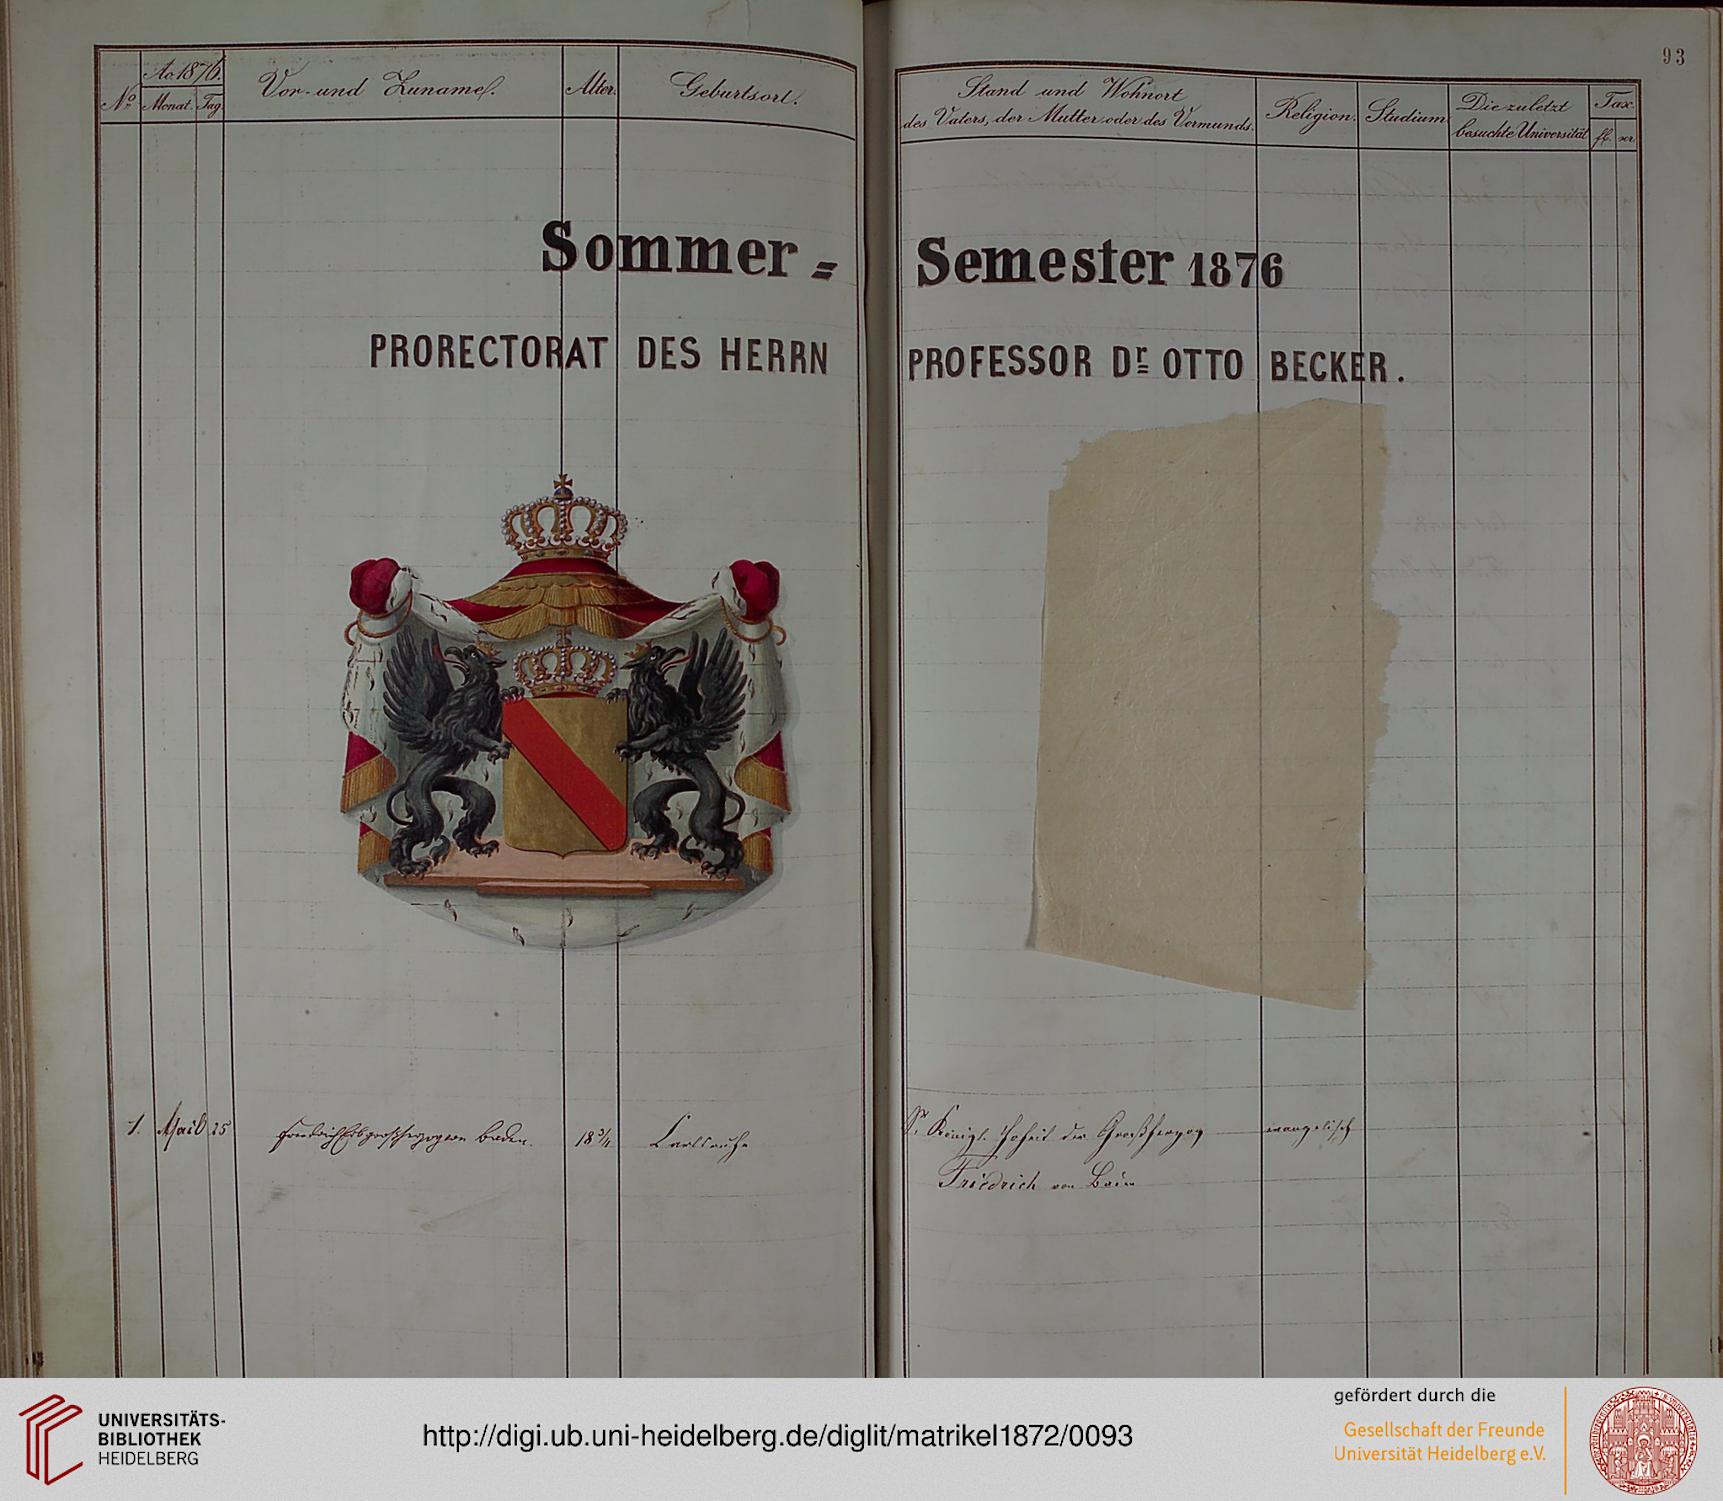 93
Ao 1876.
No Monat. Tag.
Vor- und Zuname.
Alter.
Geburtsort.
Stand und Wohnort
des Vaters, der Mutter oder des Vormunds.
Religion.
Studium
Die zuletzt
besuchte Universität
Tax.
fl. xr.
Sommer = Semester 1876
PRORECTORAT DES HERRN PROFESSOR Dr OTTO BECKER.
1. Mai 25 Friedrich Erbgrossherzog von Baden. 18 3/4 Carlsruhe Sr. Königl. Hoheit der Großherzog evangelisch
Friedrich von Baden
UNIVERSITÄTS-
BIBLIOTHEK
HEIDELBERG
http://digi.ub.uni-heidelberg.de/diglit/matrikel1872/0093
gefördert durch die
Gesellschaft der Freunde
Universität Heidelberg e.V.